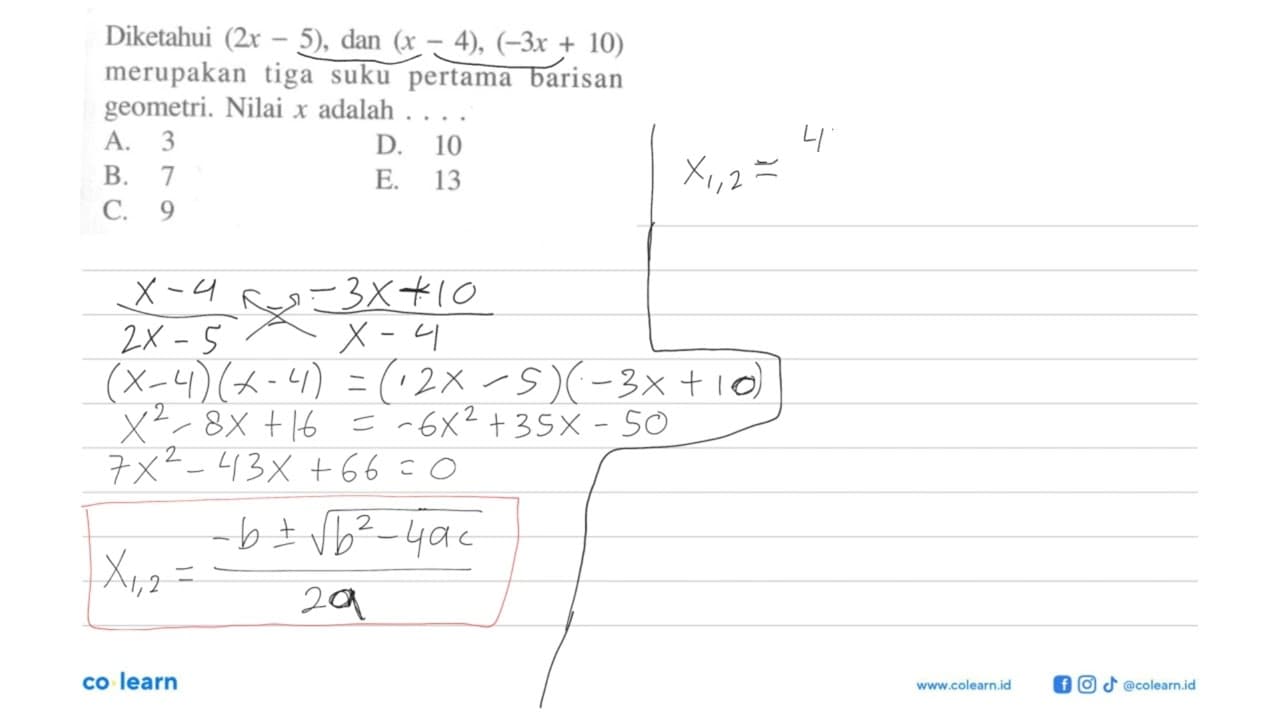 Diketahui (2x – 5), dan (x – 4), (–3x + 10)
merupakan tiga suku pertama barisan
geometri. Nilai x adalah . . . .
A. 3
B. 7
C. 9
D. 10
E. 13
(x-4)/(2x-5) = (-3x+10)/(x-4)
(x-4)(x-4) = (2x-5)(-3x+10)
x²-8x+16 = -6x²+35x-50
7x²-43x+66=0
x₁,₂ = (-b±√(b²-4ac))/(2a)
x₁,₂ = 4
co learn
www.colearn.id
@colearn.id